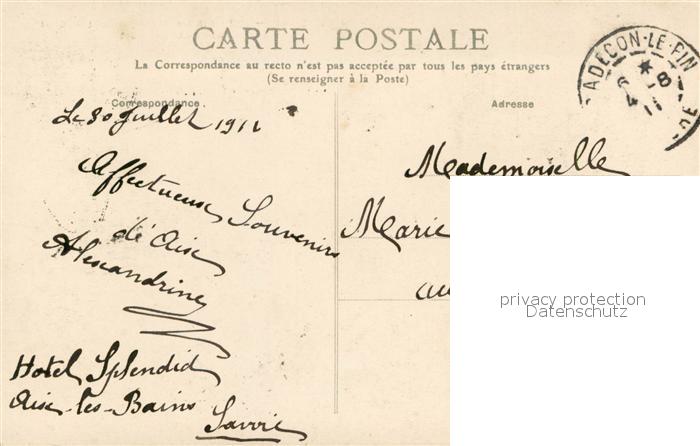 CARTE POSTALE
La Correspondance au recto n'est pas acceptée par tous les pays étrangers
(Se renseigner à la Poste)
Correspondance
Le 30 Juillet 1911
Affectueux Souvenirs
d'Aix
Alexandrine
Hotel Splendid
Aix-les-Bains
Savoie
Adresse
Mademoiselle
Marie
au
ADECON-LE-FIN
6 - 8
11
privacy protection
Datenschutz